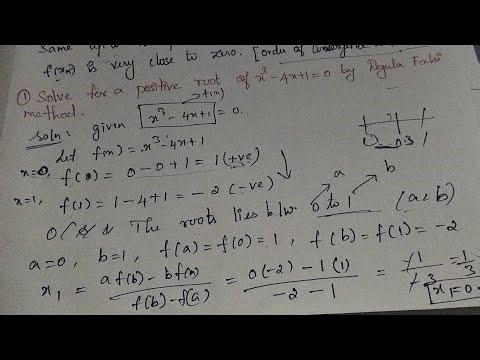 same up to
f(xn) is very close to zero. [order of convergence
① Solve for a positive root of x³-4x+1=0 by Regula Falsi
method.
f(x)
Soln: given x³-4x+1 = 0.
Let f(x) = x³-4x+1
x=0, f(0) = 0-0+1 = 1 (+ve)
x=1, f(1) = 1-4+1 = -2 (-ve)
a b
The roots lies b/w 0 to 1 (a<b)
a=0, b=1, f(a) = f(0) = 1, f(b) = f(1) = -2
x₁ = af(b)-bf(a) / f(b)-f(a) = 0(-2)-1(1) / -2-1 = -1/-3 = 1/3
x₁=0.